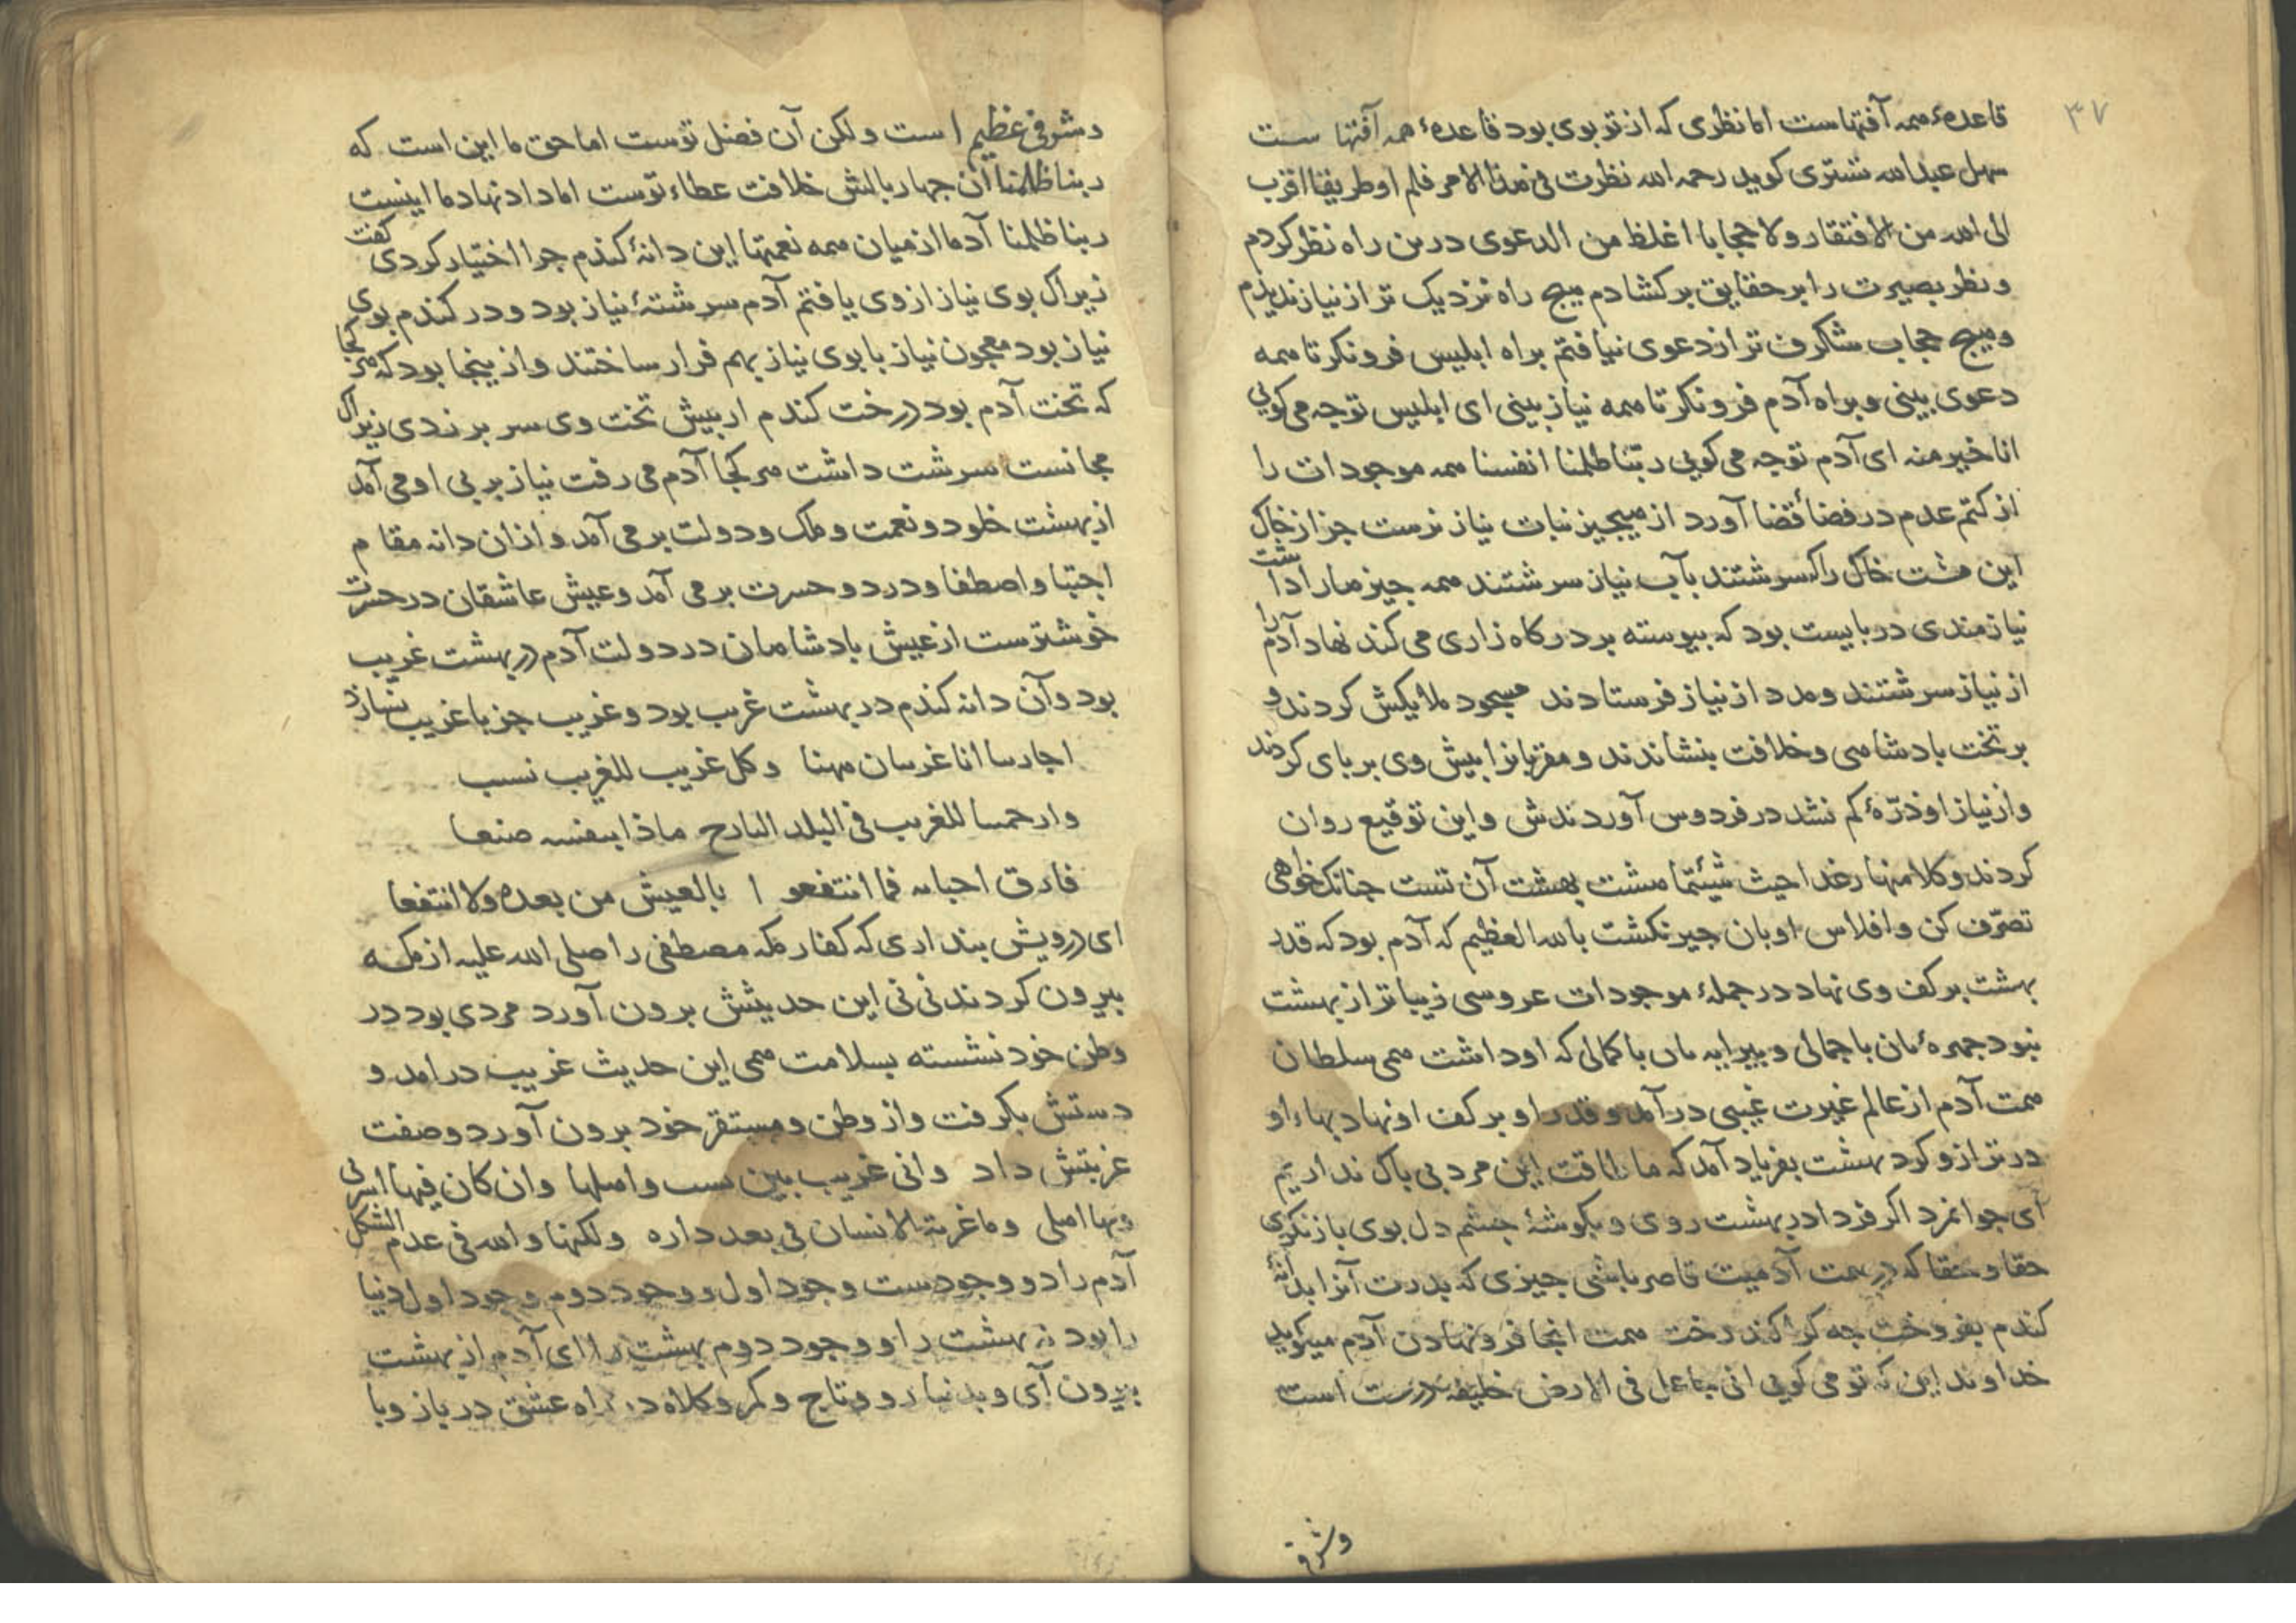 ۳۷
قاعدهٔ همه آفتهاست اما نظری که از تو بوی بود قاعدهٔ همه آفتها ست
سهل عبدالله تستری کوید رحمه الله نظرت فی هذا الامر فلم اوطریقا اقرب
الی الله من الافتقار ولا حجابا اغلظ من الدعوی درین راه نظر کردم
و نظر بصیرت را بر حقایق برکشادم هیچ راه نزدیک تر از نیاز ندیدم
و هیچ حجاب شاکرف تر از دعوی نیافتم براه ابلیس فرونکر تا همه
دعوی بینی و براه آدم فرونکر تا همه نیاز بینی ای ابلیس تو چه می کویی
انا خیر منه ای آدم تو چه می کویی ربنا ظلمنا انفسنا همه موجودات را
از کتم عدم در فضاٴ قضا آورد از هیچیز نبات نیاز نرست جز از خاک
این مشت خاک را که سرشتند بآب نیاز سرشتند همه چیز ها را داشت
نیازمندی دربایست بود که پیوسته بر درکاه زاری می کند نهاد آدم را
از نیاز سرشتند و مدد از نیاز فرستادند مسجود ملایکش کردند و
بر تخت بادشاهی و خلافت بنشاندند و مقربانرا پیش وی بر بای کردند
و از نیاز او ذرّهٔ کم نشد در فردوس آوردندش و این توقیع روان
کردند و کلا منها رغدا حیث شیٔتما هشت بهشت آن تست چنانک خواهی
تصرّف کن و افلاس او بان جبر نکشت بالله العظیم که آدم بود که قدر
بهشت بر کف وی نهاد در جملهٔ موجودات عروسی زیباتر از بهشت
نبود چهرهٔ بان باجمالی و پیرایه بان باکمالی که او داشت همی سلطان
همت آدم از عالم غیرت غیبی درآمد و قدر او بر کف او نهاد بهاء او
در ترازو کرد بهشت بفریاد آمد که ما طاقت این مرد بی باک نداریم
ای جوانمرد اکر فردا در بهشت روی و بکوشهٔ چشم دل بوی باز نکری
حقا و حقا که در همت آدمیت قاصر باشی چیزی که بدرت آنرا بدانهٔ
کندم بفروخت چه کرا کند رخت همت انجا فرونهادن آدم میکوید
خداوندا این که تو می کویی انی جاعل فی الارض خلیفة درست است
وشرفی
وشرفی عظیم است ولکن آن فضل توست اما حق ما این است که
ربنا ظلمنا آن چهار بالش خلافت عطاء توست اما داد نهاد ما اینست
ربنا ظلمنا آدما از میان همه نعمتها این دانهٔ کندم چرا اختیار کردی کفت
زیراک بوی نیاز از وی یافتم آدم سرشتهٔ نیاز بود و در کندم بوی
نیاز بود معجون نیاز با بوی نیاز بهم قرار ساختند و از ینجا بود که هر کجا
که تخت آدم بود درخت کندم از بیش تخت وی سر بر زدی زیراک
مجانست سرشت داشت هر کجا آدم می رفت نیاز بر پی او می آمد
از بهشت خلود و نعمت و ملک و دولت بر می آمد و از ان دانه مقا م
اجتبا و اصطفا و درد و حسرت بر می آمد و عیش عاشقان در حسرت
خوشترست از عیش بادشاهان در دولت آدم در بهشت غریب
بود و آن دانه کندم در بهشت غریب بود و غریب جز با غریب نسازد
اجارتنا انا غریبان ههنا وکل غریب للغریب نسیب
وارحمتا للغریب فی البلد النازح ماذا بنفسه صنعا
فارق احبابه فما انتفعو ا بالعیش من بعده ولا انتفعا
ای درویش بنداری که کفار مکه مصطفی را صلی الله علیه از مکه
بیرون کردند نی نی این حدیثش برون آورد مردی بود در
وطن خود نشسته بسلامت همی این حدیث غریب درامد و
دستش بکرفت و از وطن و مستقر خود برون آورد و صفت
غربتش داد وانی غریب بین بست واهلها وان کان فیها اسرتی
وبها اهلی وما غربة الانسان فی بعد داره ولکنها والله فی عدم الشکل
آدم را دو وجودست وجود اول و وجود دوم وجود اول دنیا
را بود نه بهشت را و وجود دوم بهشت را ای آدم از بهشت
بیرون آی و بدنیا رو و تاج و کمر و کلاه در راه عشق درباز و با